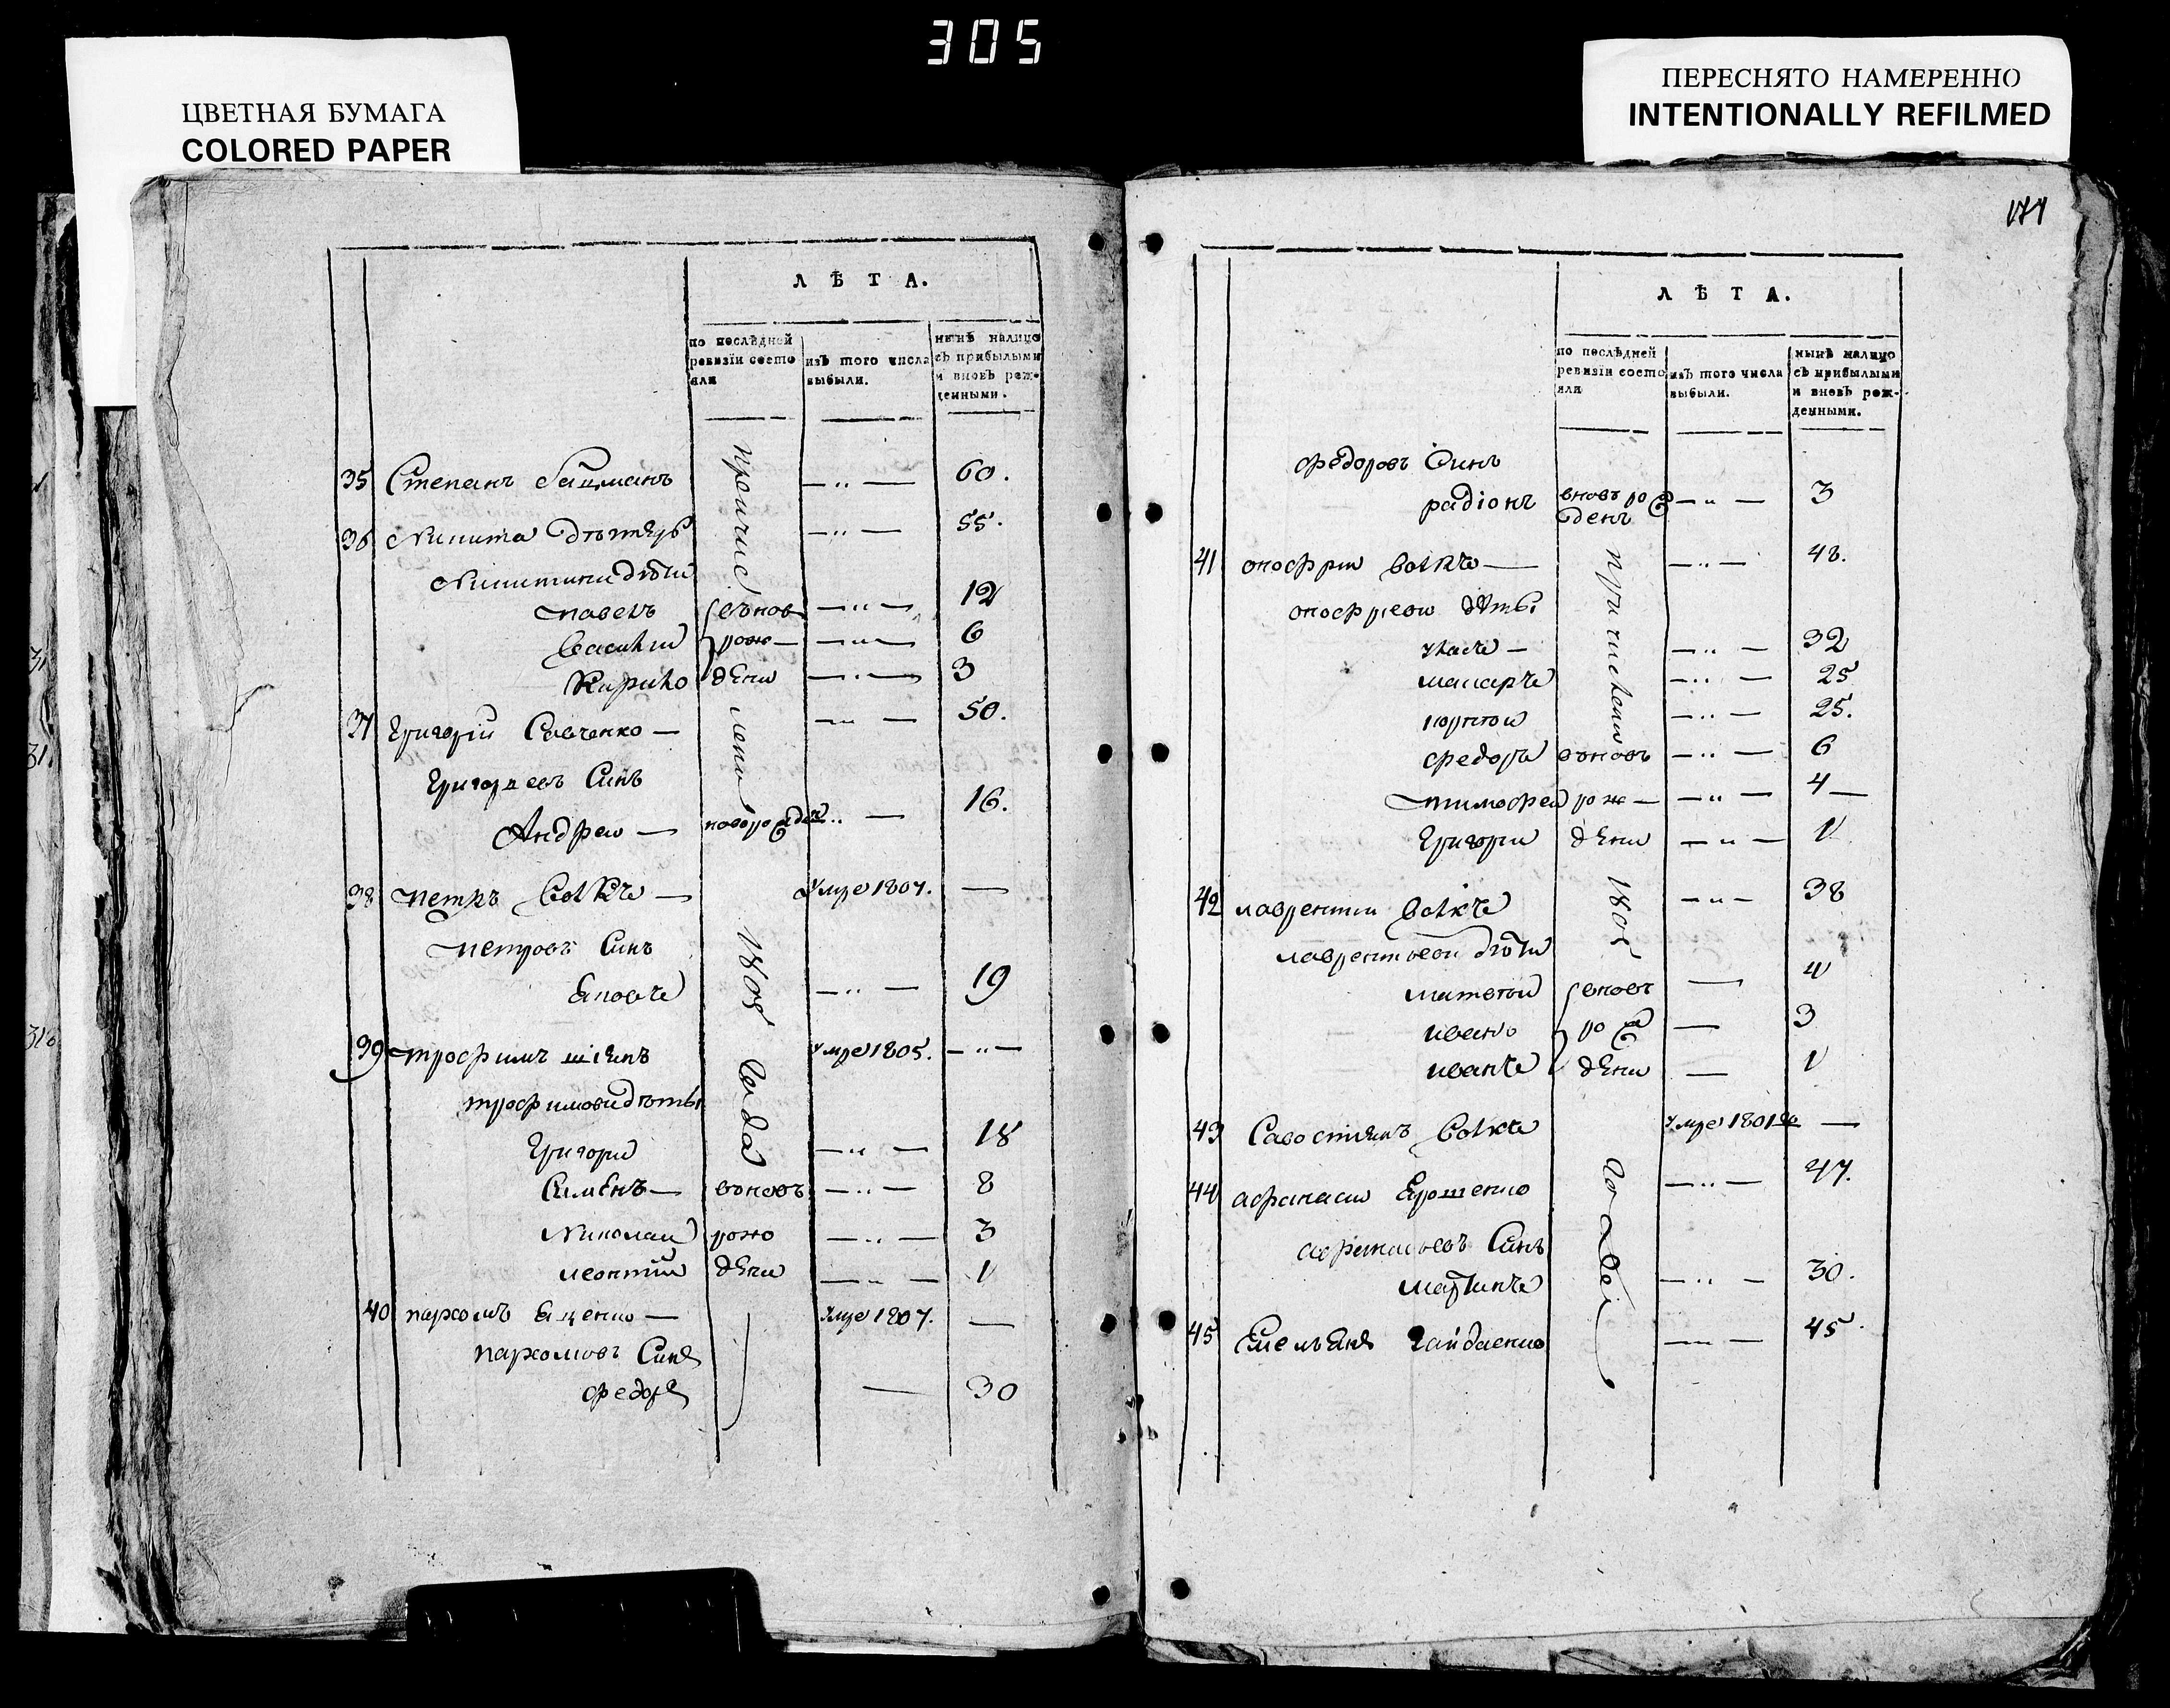 305
ЦВЕТНАЯ БУМАГА
COLORED PAPER
ПЕРЕСНЯТО НАМЕРЕННО
INTENTIONALLY REFILMED
ЛѢТА.
по послѣдней ревизіи состояли
изъ того числа выбыли.
нынѣ налицо съ прибылыми и вновь рожденными.
35 Степанъ — " — 60.
36 Никита — " — 55.
Никитини дѣти
павелъ вънов — " — 12
Василии рож — — " — 6
Кирило дени — " — 3
37 Григорій Савченко — — " — 50.
Григориевъ Синъ
Андреи — новорожден — " — 16.
38 петръ Волкъ — умре 1807. —
петровъ Синъ
Яковъ — " — 19
39 трофимъ умре 1805. — " —
трофимови дѣты
Григори — " — 18
Сименъ — вновъ — " — 8
Николаи рожо — " — 3
леонтии дени — " — 1
40 пархомъ Яценко — умре 1807. —
пархомовъ Синъ
федоръ — 30
причисленни 1808 года
ЛѢТА.
по послѣдней ревизіи состояли
изъ того числа выбыли.
нынѣ налицо съ прибылыми и вновь рожденными.
федоровъ Синъ
радіонъ вновъ рожденъ — " — 3
41 онофрии Волкъ — — " — 48.
онофриеви дѣты
власъ — — " — 32
макаръ — " — 25
— " — 25.
федоръ вновъ — " — 6
тимофеи рож — — " — 4 —
Григори дени — " — 1
42 лаврентии Волкъ — " — 38
лаврентиеви дѣти
матвеи вновъ — 4
иванъ рож — 3
иванъ дени — 1
43 Савостиянъ Волкъ умре 1801го —
44 афанаси Ярошенко — " — 47.
афанасиевъ Синъ
мартинъ — " — 30.
45 Емельянъ Гайдаенко — — 45.
причисленни 1808 года